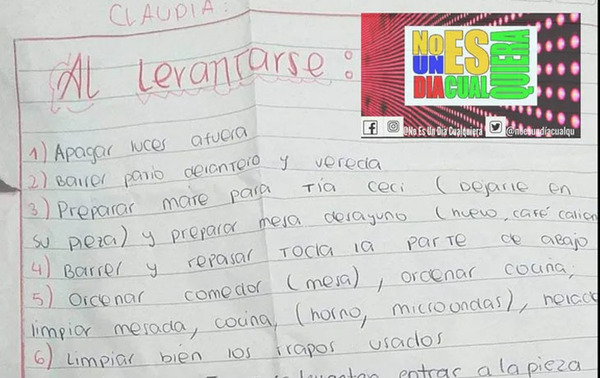 CLAUDIA:
Al Levantarse:
NO ES
UN
DIA CUALQUIERA
@No Es Un Dia Cualquiera @noesundiacualqu
1) Apagar luces afuera
2) Barrer patio delantero y vereda
3) Preparar mate para Tía Ceci (Dejarle en
su pieza) y preparar mesa desayuno (huevo, café calien
4) Barrer y repasar Toda la parte de abajo
5) Ordenar comedor (mesa), ordenar cocina,
limpiar mesada, cocina, (horno, microondas), helade
6) Limpiar bien los trapos usados
levantan entrar a la pieza